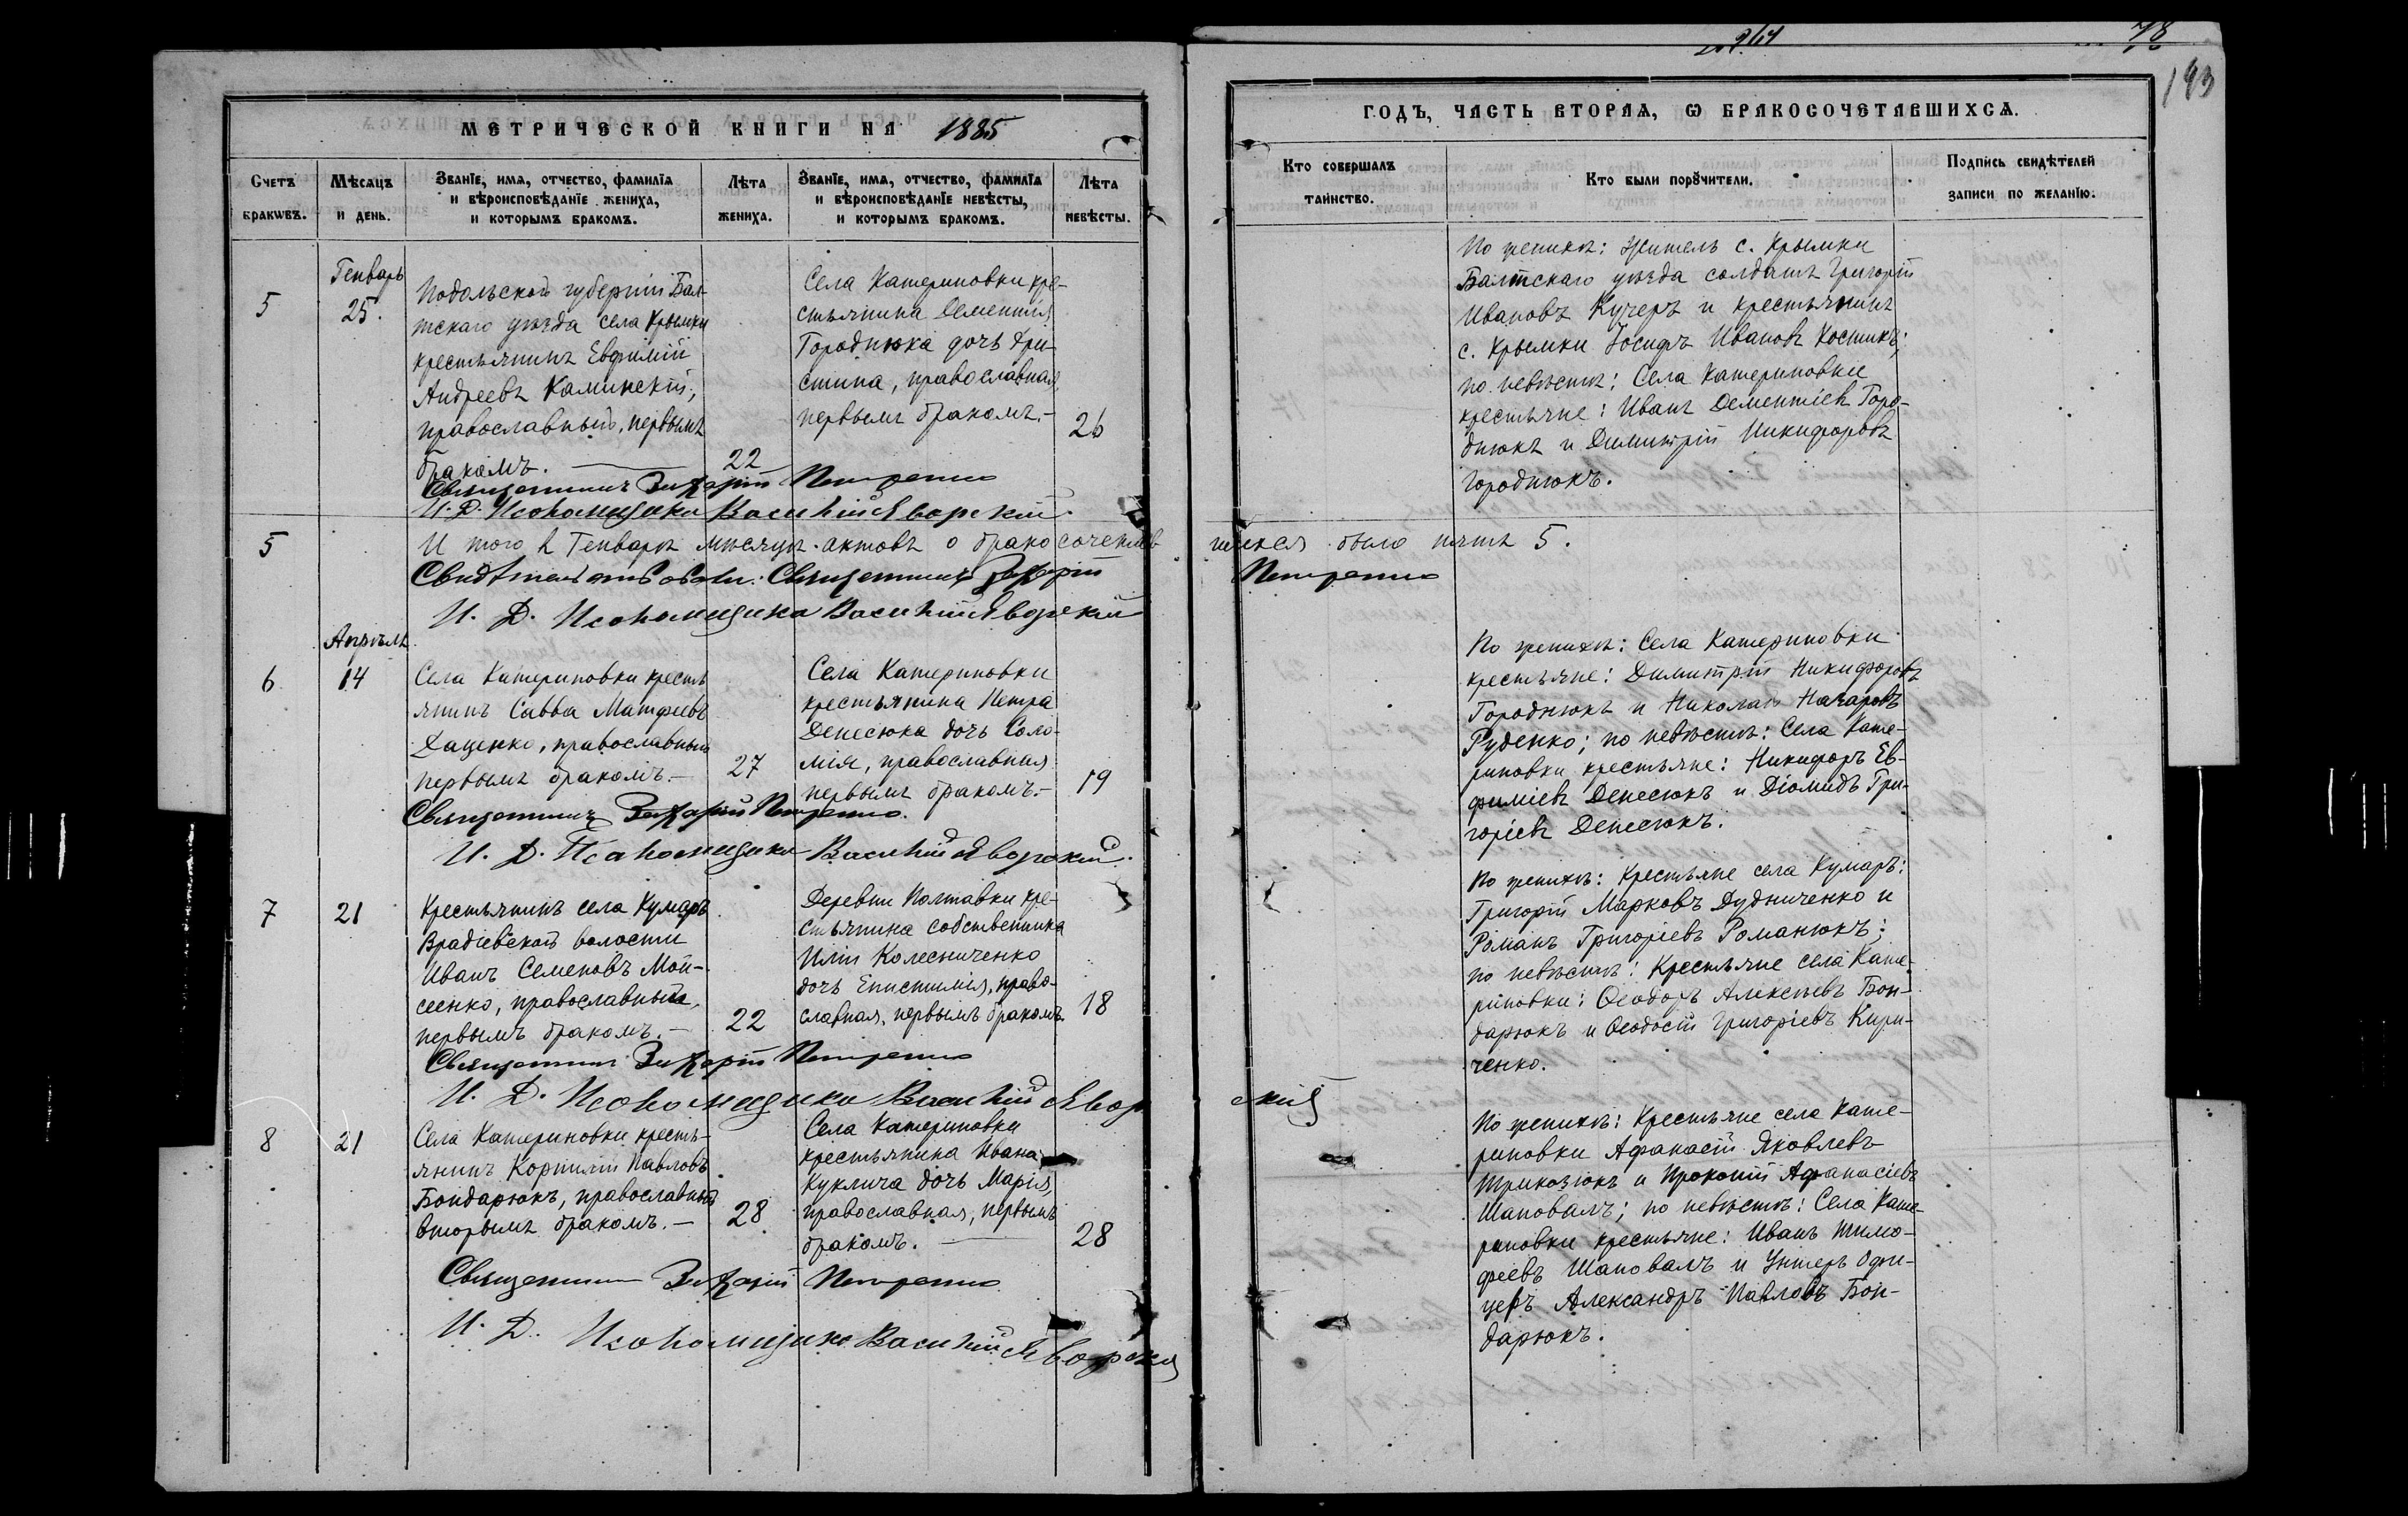 МЕТРИЧЕСКОЙ КНИГИ НА 1885
Счетъ браковъ.
Мѣсяцъ и день.
Званїе, имя, отчество, фамилїя и вѣроисповѣданїе жениха, и которымъ бракомъ.
Лѣта жениха.
Званїе, имя, отчество, фамилїя и вѣроисповѣданїе невѣсты, и которымъ бракомъ.
Лѣта невѣсты.
5
Генварь
25.
Подольской губерніи Бал-
тскаго уѣзда села Крымки
крестьянинъ Евфимій
Андреевъ Каминскій,
православный, первымъ
бракомъ.
22
Села Катериновки кре-
стьянина Дементія
Городнюка дочь Хри-
стина, православная
первымъ бракомъ.-
26
Священникъ Захарій Петренко
И. Д. Псаломщика Василій Яворскій.
5
И того въ Генварѣ мѣсяцѣ актовъ о бракосочетав
Свидѣтельствовали: Священникъ Захарій
И. Д. Псаломщика Василій Яворскій
6
Апрѣль
14
Села Катериновки кресть
янинъ Савва Матфеевъ
Даценко, православный
первымъ бракомъ.-
27
Села Катериновки
крестьянина Петра
Денесюка дочь Соло-
мія, православная
первымъ бракомъ.-
19
Священникъ Захарій Петренко.
И. Д. Псаломщика Василій Яворскій.
7
21
Крестьянинъ села Кумаръ
Врадіевской волости
Иванъ Семеновъ Мой-
сеенко, православный,
первымъ бракомъ.-
22
Деревни Полтавки кре-
стьянина собственника
Иліи Колесниченко
дочь Епистимія, право-
славная, первымъ бракомъ.
18
Священникъ Захарій Петренко
И. Д. Псаломщика Василій Явор
8
21
Села Катериновки кресть-
янинъ Корнилій Павловъ
Бондарюкъ, православный
вторымъ бракомъ.-
28
Села Катериновки
крестьянина Ивана
Куклича дочь Марія,
православная, первымъ
бракомъ.
28
Священникъ Захарій Петренко
И. Д. Псаломщика Василій Яворскій
78
193
ГОДЪ, ЧАСТЬ ВТОРАЯ, Ѡ БРАКОСОЧЕТАВШИХСЯ.
Кто совершалъ таинство.
Кто были порꙋчители.
Подпись свидѣтелей записи по желанїю.
По женихѣ: Житель с. Крымки
Балтскаго уѣзда солдатъ Григорій
Ивановъ Кучеръ и крестьянинъ
с. Крымки Іосифъ Ивановъ Костикъ;
по невѣстѣ: Села Катериновки
крестьяне: Иванъ Дементіевъ Горо-
днюкъ и Димитрій Никифоровъ
Городнюкъ.
шихся было пять 5.
Петренко
По женихѣ: Села Катериновки
крестьяне: Димитрій Никифоровъ
Городнюкъ и Николай Назаровъ
Руденко; по невѣстѣ: Села Кате-
риновки крестьяне: Никифоръ Ев-
фиміевъ Денесюкъ и Діомидъ Гри-
горіевъ Денесюкъ.
По женихѣ: Крестьяне села Кумаръ:
Григорій Марковъ Дудниченко и
Романъ Григоріевъ Романюкъ;
по невѣстѣ: Крестьяне села Кате-
риновки: Ѳеодоръ Алексѣевъ Бон-
дарюкъ и Ѳеодосій Григоріевъ Кири-
ченко.
скій
По женихѣ: Крестьяне села Кате-
риновки Афанасій Яковлевъ
Трикозюкъ и Прокопій Афанасіевъ
Шаповалъ; по невѣстѣ: Села Кате-
риновки крестьяне: Иванъ Тимо-
феевъ Шаповалъ и Унтеръ Офи-
церъ Александръ Павловъ Бон-
дарюкъ.